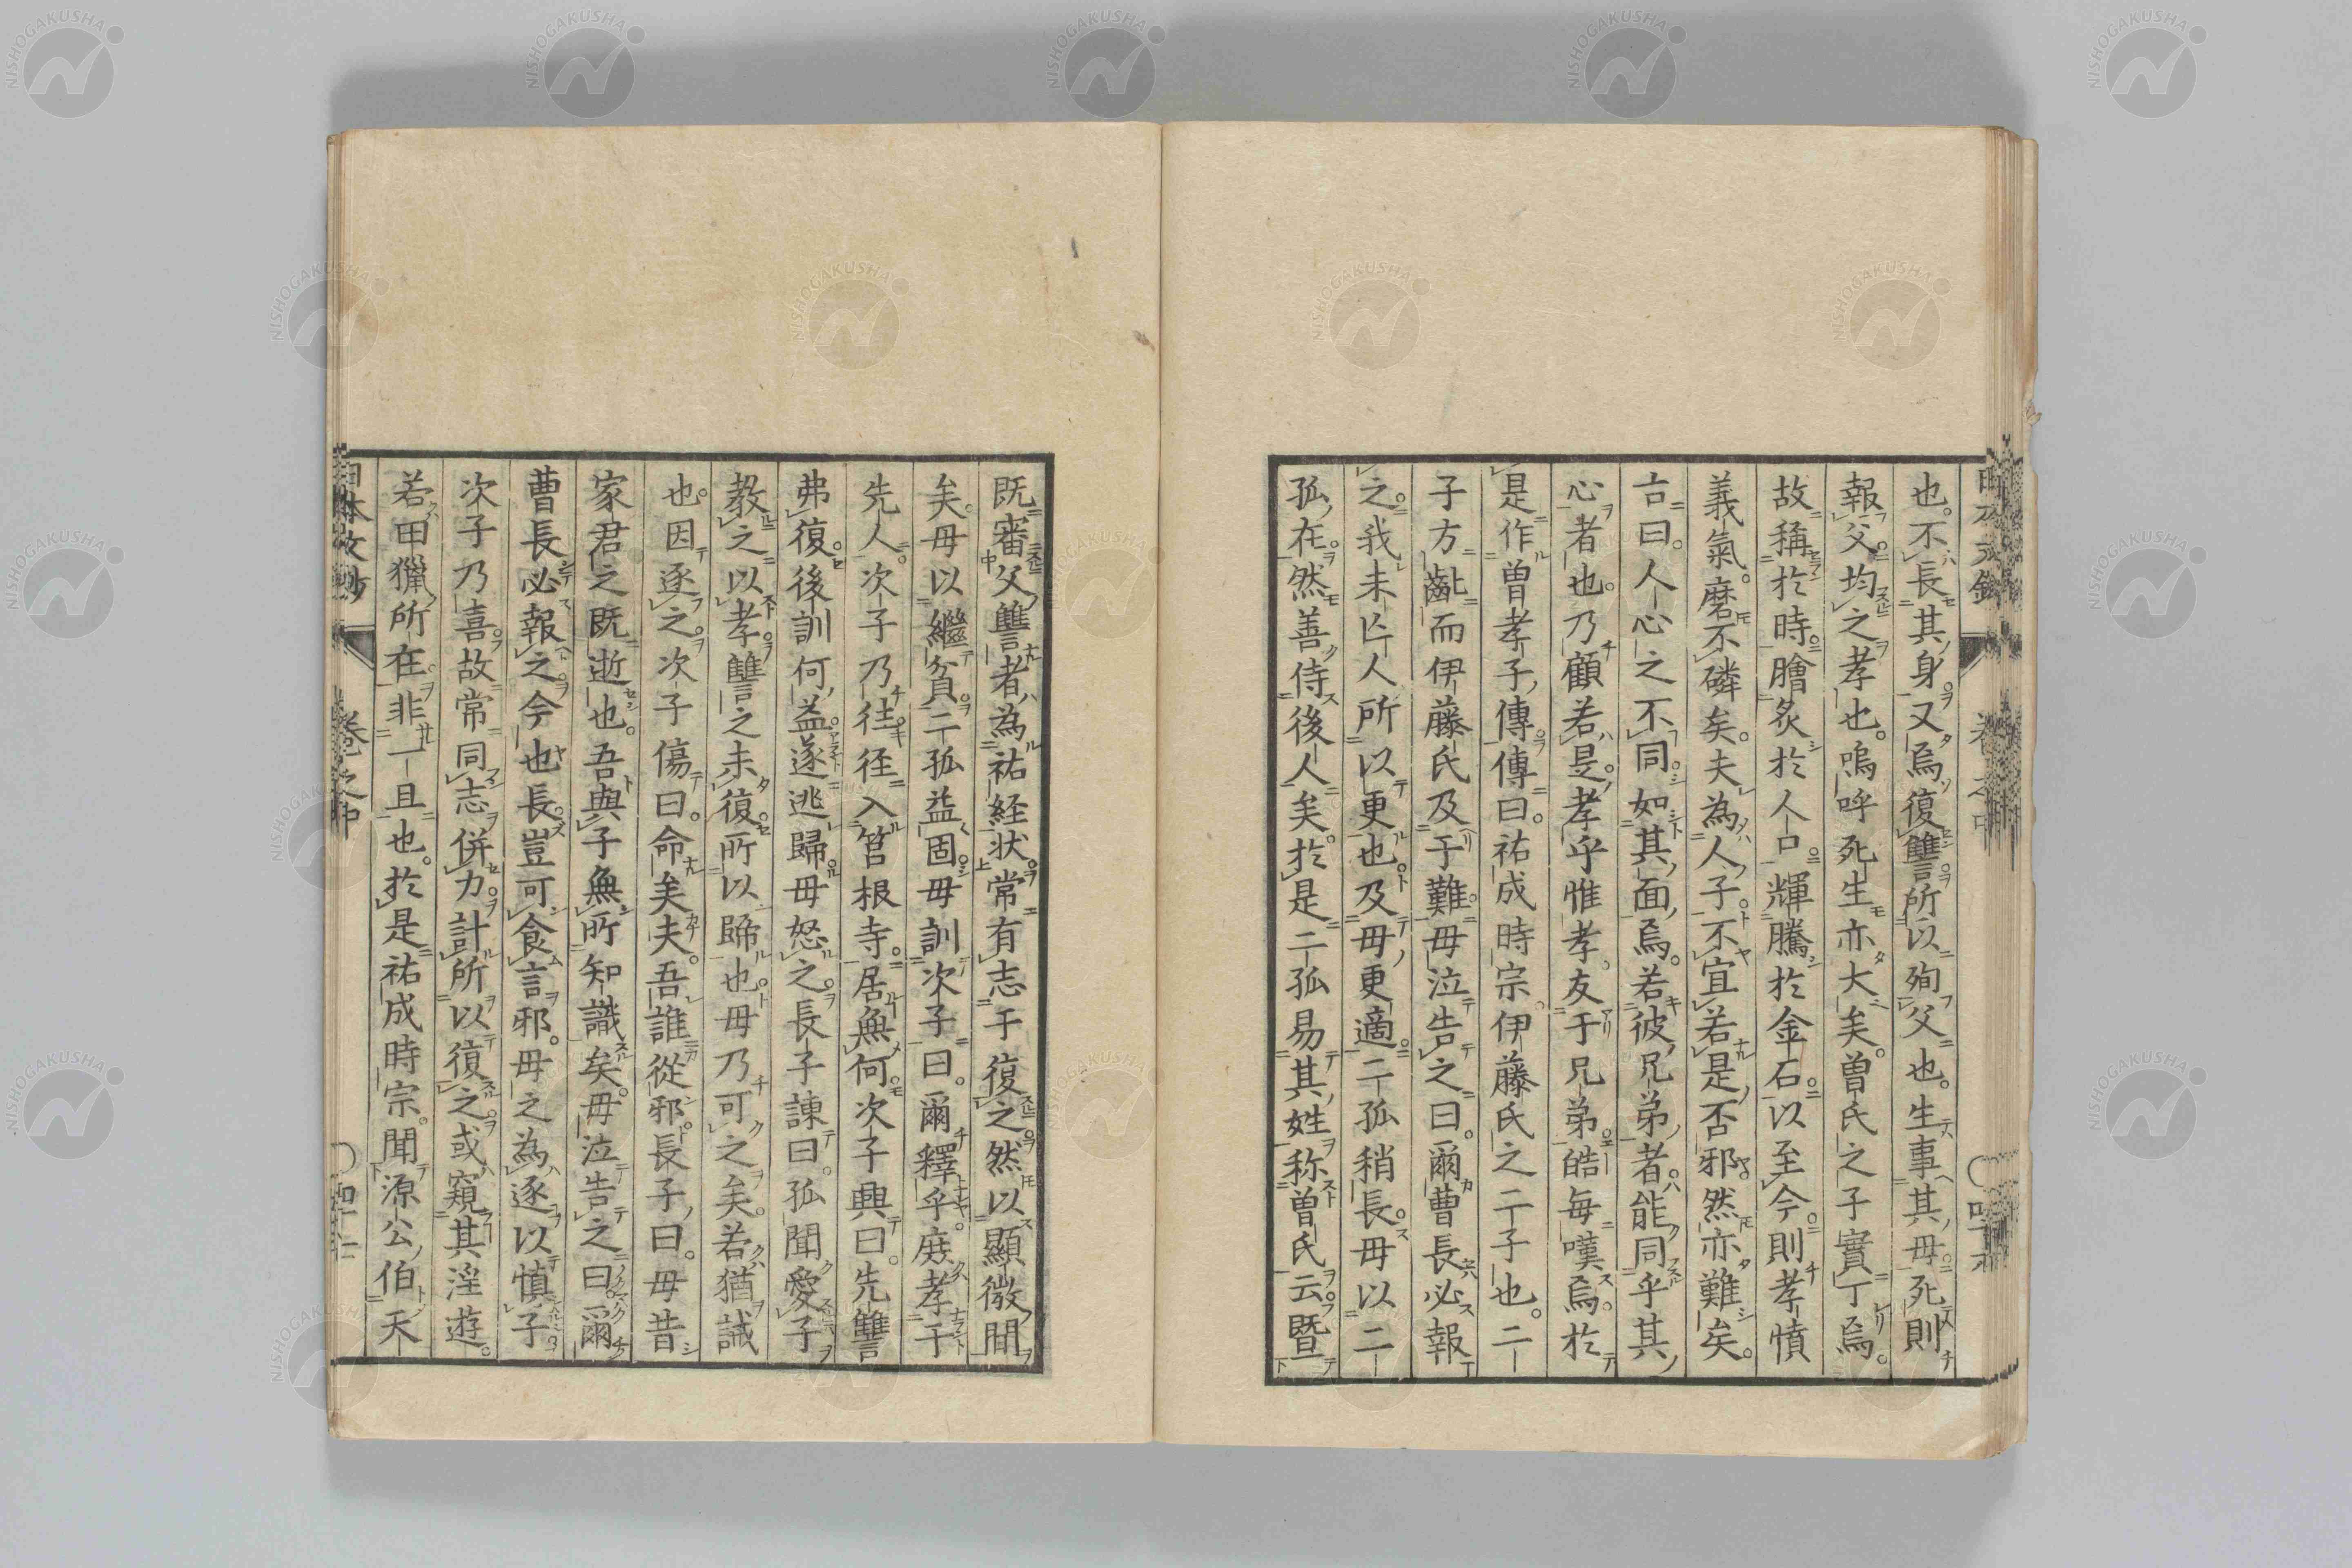 也。不長其身。又焉復讐。所以殉父也。生事其母。死則
報父。均之孝也。嗚呼死生亦大矣。曽氏之子實丁焉。
故稱於時。膾炙於人口。輝騰於金石。以至今。則孝憤
義氣。磨不磷矣。夫為人子。不宜若是否邪。然亦難矣。
古曰。人心之不同。如其面焉。若彼兄弟者。能同乎其
心者也。乃顧若是。孝乎惟孝。友于兄弟。皓毎嘆焉。於
是作曽孝子傳。傳曰。祐成時宗。伊藤氏之二子也。二
子方齔。而伊藤氏及于難。母泣告之曰。爾曹長必報
之。我未亡人所以更也。及母更適。二孤稍長。母以二
孤在。然善侍後人矣。於是二孤易其姓称曽氏云。曁
日本文鈔 卷之中
既審父讐者為祐経状。常有志于復之。然以顯微間
矣。母以繼貧。二孤益固。母訓次子曰。爾釋乎。庶孝于
先人。次子乃往径入筥根寺。居無何。次子興曰。先讐
弗復。後訓何益。遂逃歸。母怒之。長子諌曰。孤聞愛子
教之以孝。讐之未復。所以歸也。母乃可之矣。若猶誡
也。因逐之。次子傷曰。命矣夫。吾誰從邪。長子曰。母昔
家君之既逝也。吾與子無所知識矣。母泣告之曰。爾
曹長必報之。今也長。豈可食言邪。母之為逐。以慎子
次子乃喜。故常同志併力。計所以復之。或窺其淫遊。
若田獵所在。非一旦也。於是祐成時宗。聞源公伯天
日本文鈔 卷之中